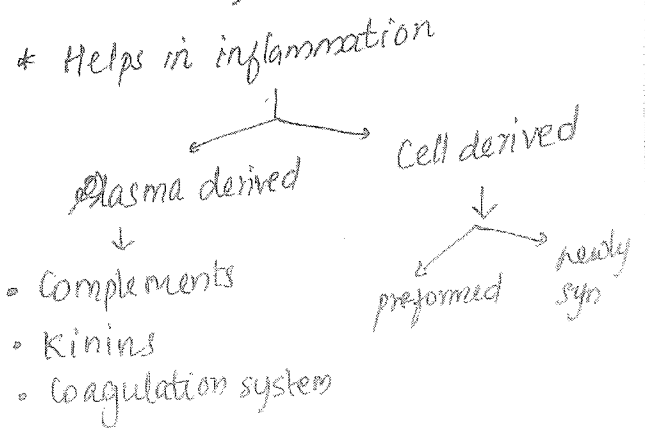 * Helps in inflammation
Plasma derived
Cell derived
• Complements
• Kinins
• Coagulation system
preformed
newly
syn